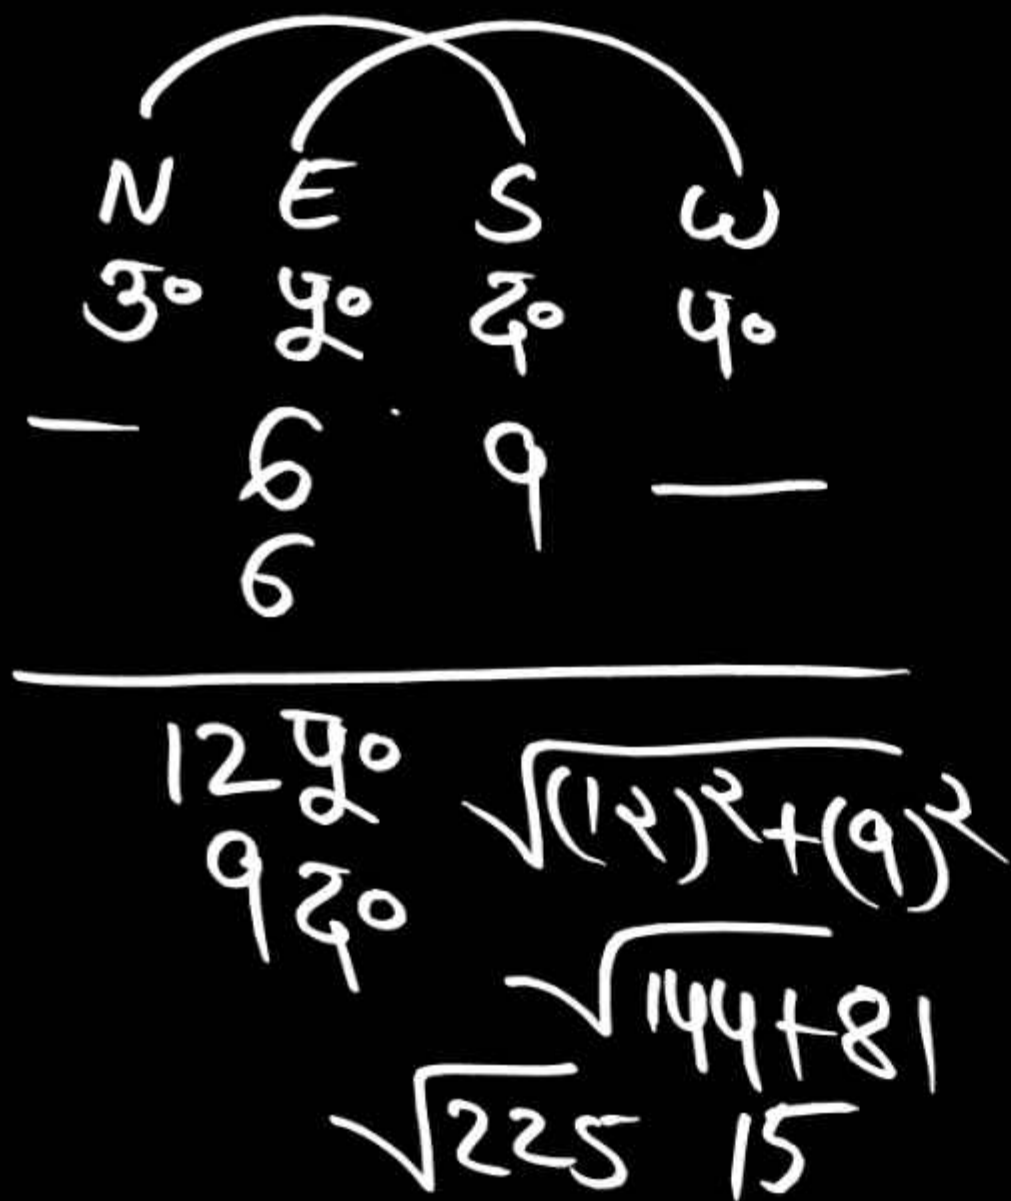 N E S W
उ० पू० द० प०
— 6 9 —
6
12 पू०
9 द०
√(1२)²+(9)²
√144+81
√225 15